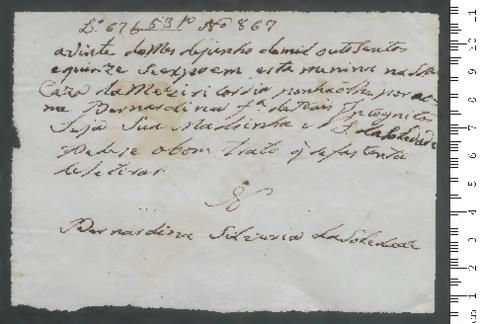 Lº 676 531 Nº 867
a vinte do Mes de junho de mil outo Sentos
e quinze Se expoem esta menina na St.
Caza da Meziricordia ponhaolhe por no
me Bernardina fª de Pais Incognitos
Seja Sua Madrinha N S. da Soledade
Pedese o bom trato q se fas tenta
de se tirar
Bernardina Silveria da Soledade